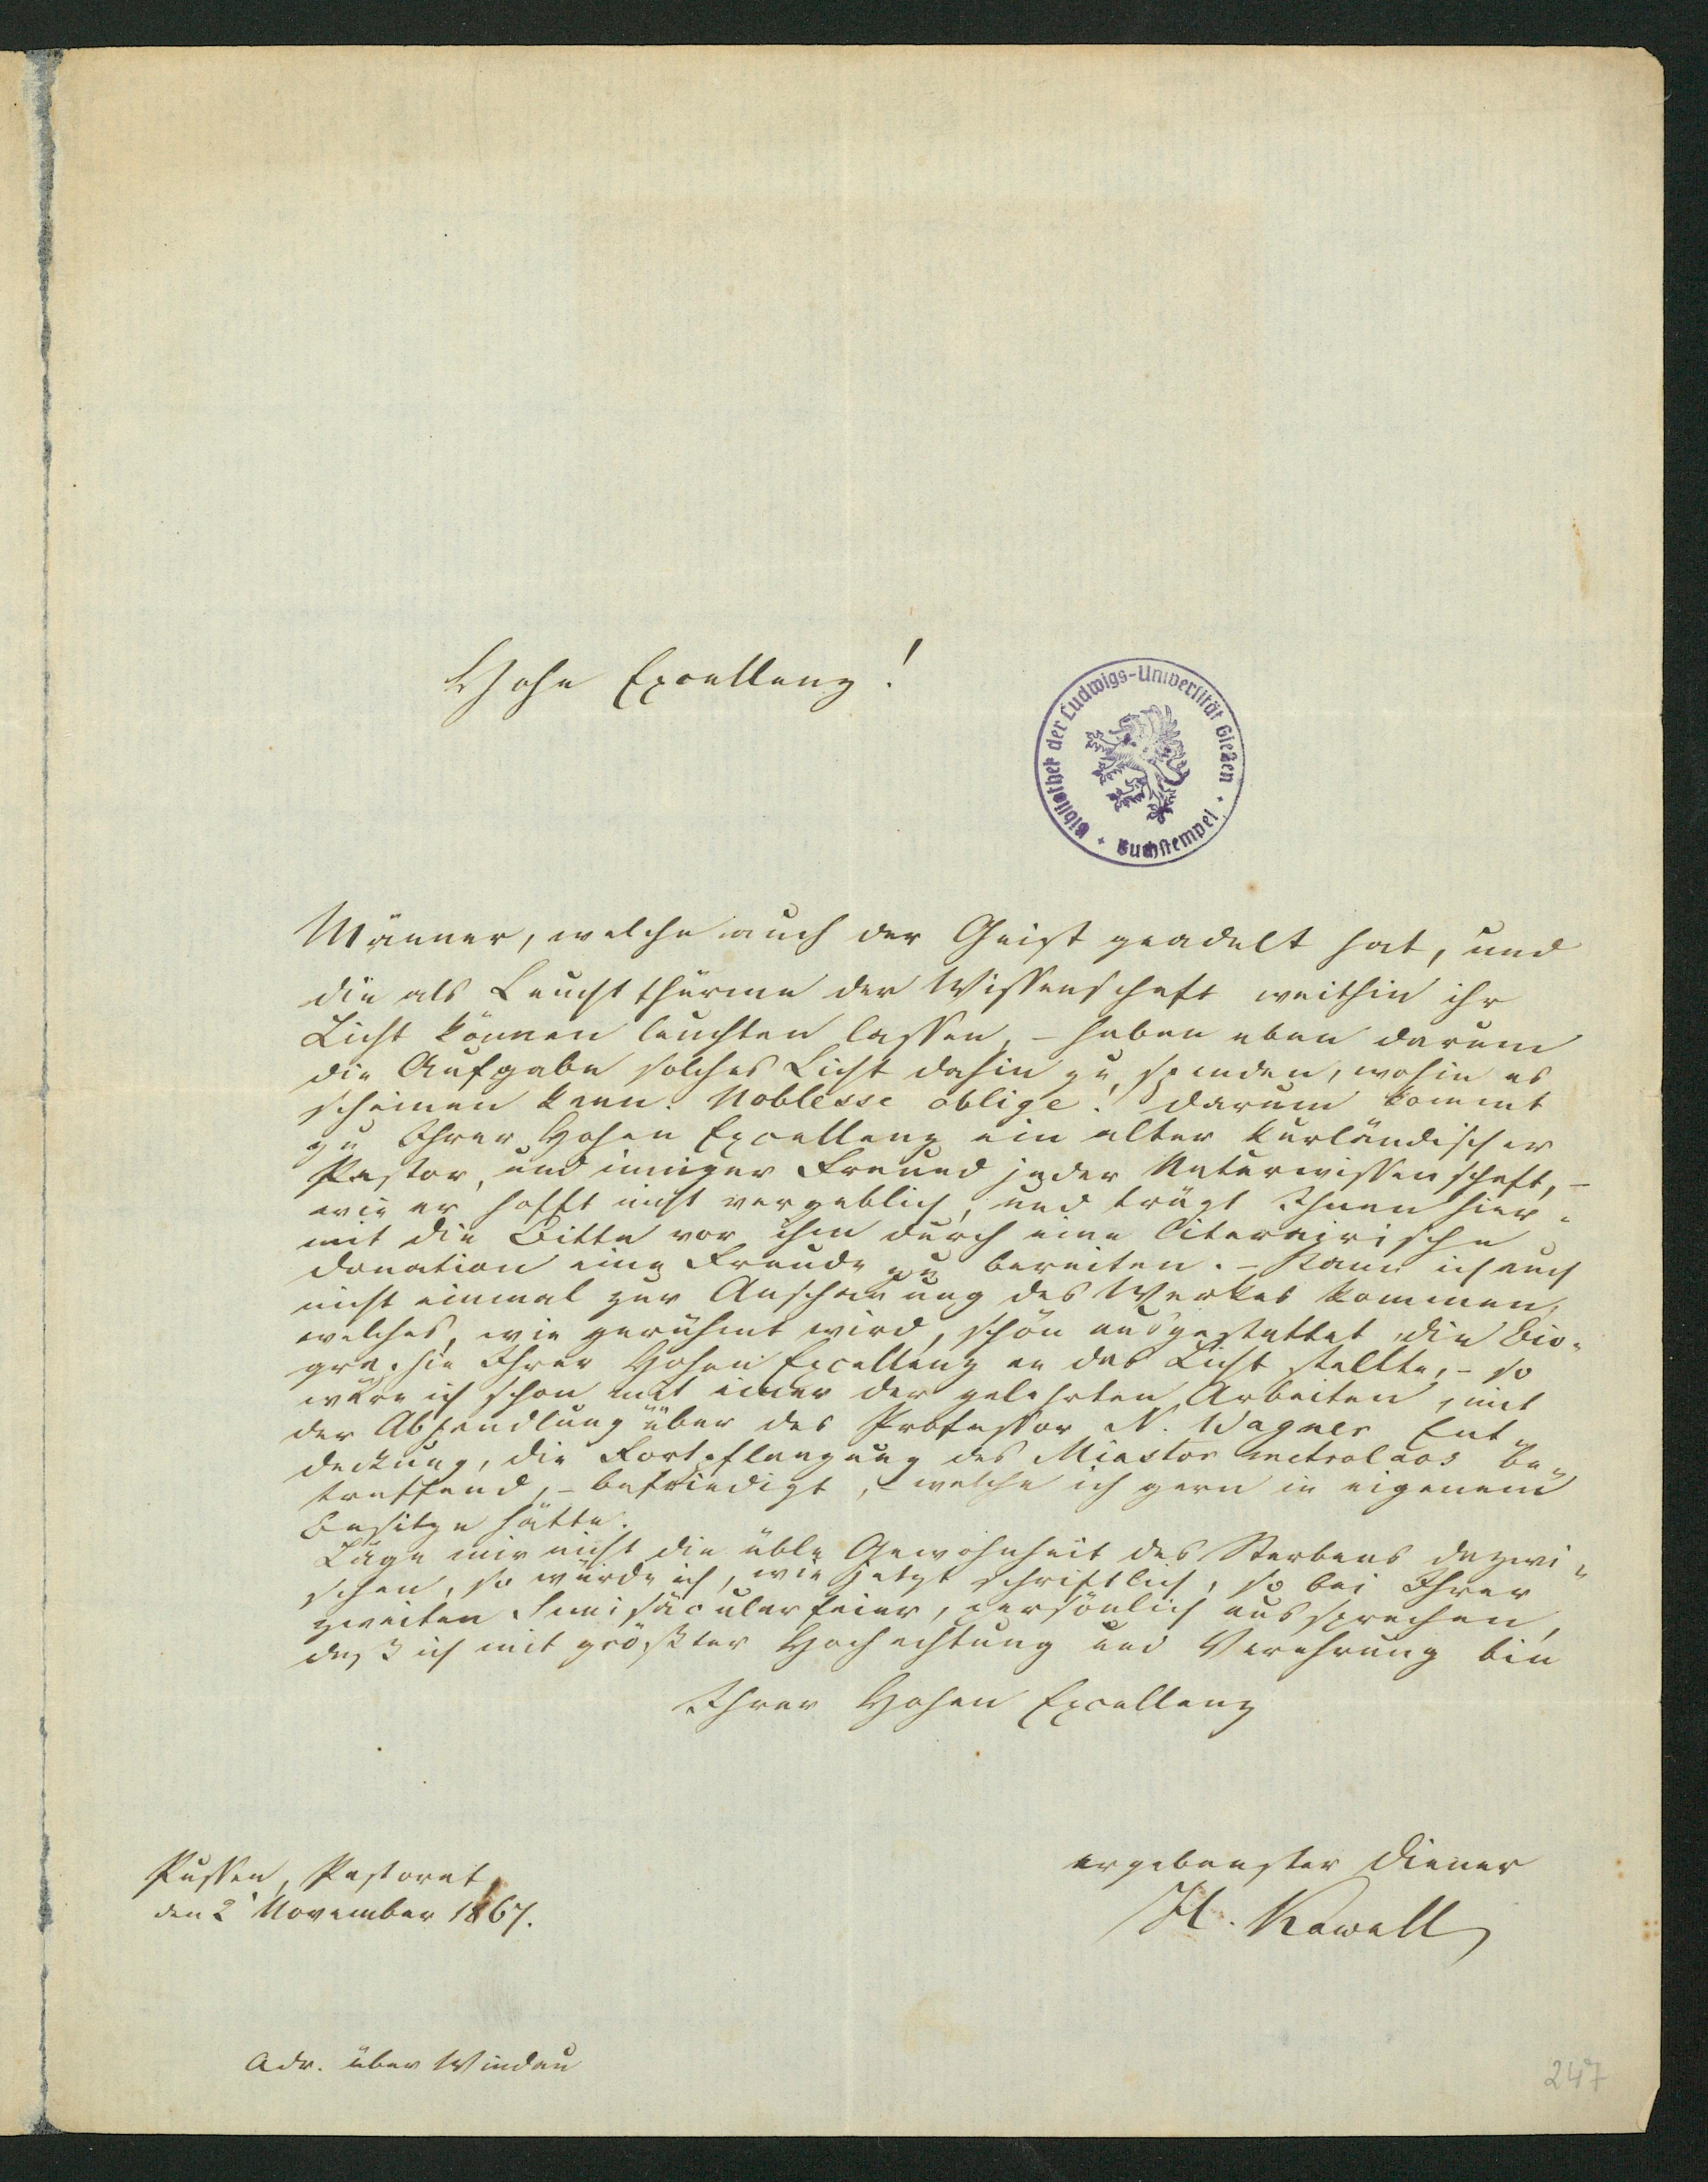 Hohe Excellenz!
Bibliothek der Ludwigs-Universität Gießen
+ Buchstempel +
Männer, welche auch der Geist geadelt hat, und
die als Leuchtthürme der Wissenschaft weithin ihr
Licht können leuchten lassen, – haben eben darum
die Aufgabe solches Licht dahin zu spenden, wohin es
scheinen kann. Noblesse oblige! Darum kommt
zu Ihrer Hohen Excellenz ein alter kurländischer
Pastor, und inniger Freund jeder Naturwissenschaft, –
wie er hofft nicht vergeblich, und trägt Ihnen hier-
mit die Bitte vor ihm durch eine literairische
Donation eine Freude zu bereiten. – Kann ich auch
nicht einmal zur Anschauung des Werkes kommen,
welches, wie gerühmt wird, schön ausgestattet die Bio-
graphie Ihrer Hohen Excellenz an das Licht stellte, – so
wäre ich schon mit einer der gelehrten Arbeiten, mit
der Abhandlung über des Professor N. Wagner Ent-
deckung, die Fortpflanzung des Miastor metroloas be-
treffend, – befriedigt, – welche ich gern in eigenem
Besitze hätte.
Läge mir nicht die üble Gewohnheit des Sterbens dazwi-
schen, so würde ich, wie jetzt schriftlich, so bei Ihrer
zweiten Semisäcularfeier, persönlich aussprechen,
daß ich mit größter Hochachtung und Verehrung bin
Ihrer Hohen Excellenz
ergebenster Diener
H. Kawall
Pussen, Pastorat,
den 2 November 1867.
Adr. über Windau
247